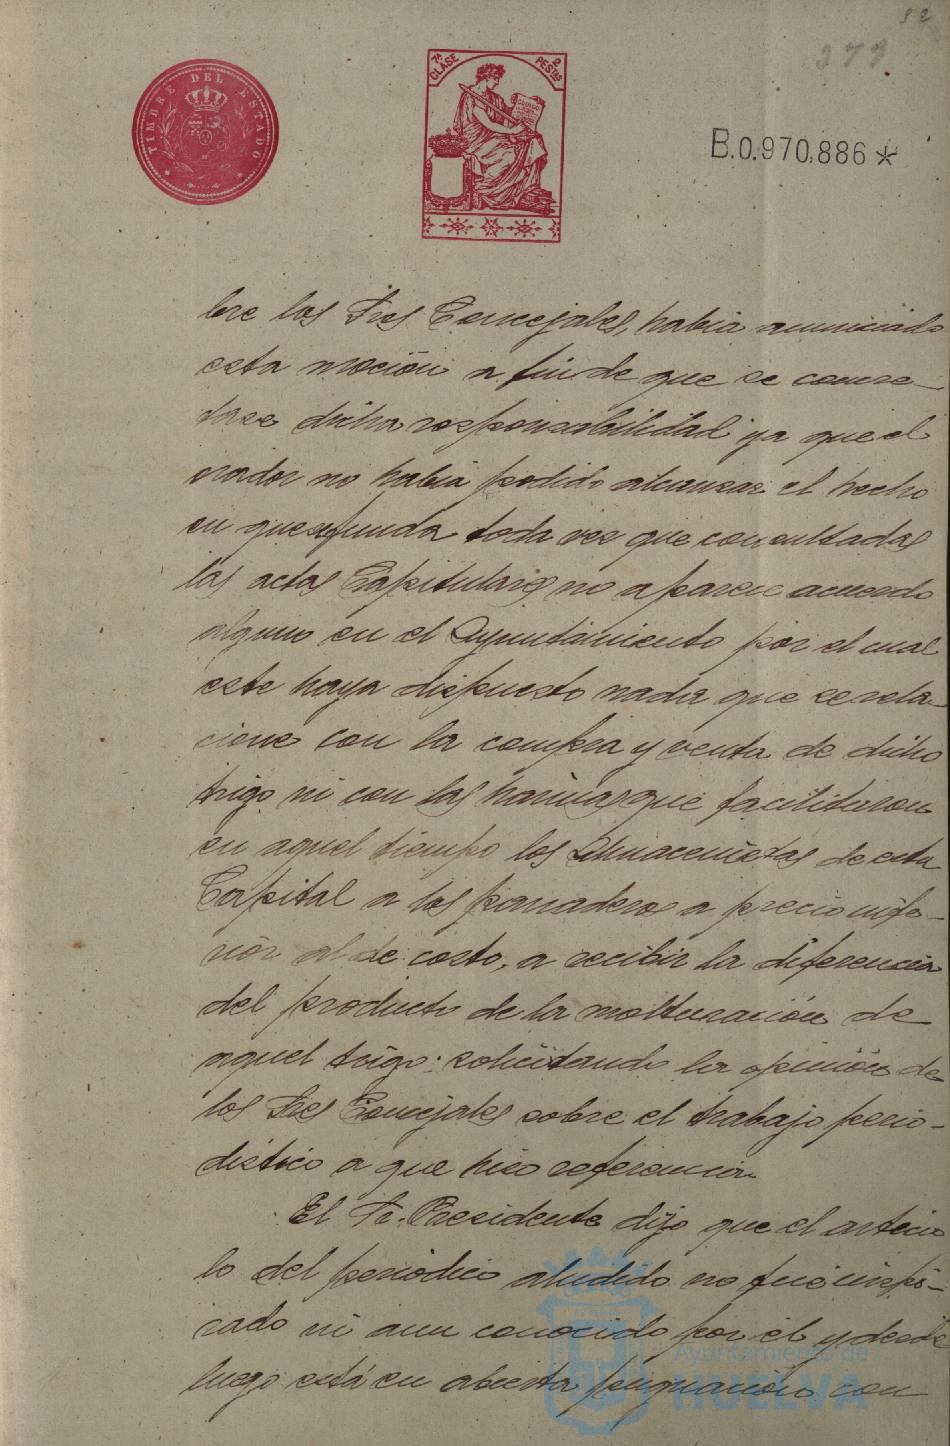 52
379
TIMBRE DEL ESTADO
7ª CLASE 2 PESTAS
B.0.970.886 *
bre los Sres Concejales, habia anunciado
esta moción a fin de que se concre-
tase dicha responsabilidad ya que el
orador no habia podido alcanzar el hecho
en que se funda toda vez que consultadas
las actas Capitulares no aparece acuerdo
alguno en el Ayuntamiento por el cual
este haya dispuesto nada que se rela-
cione con la compra y venta de dicho
trigo ni con las harinas que facilitaron
en aquel tiempo los Almacenistas de esta
Capital a los panaderos a precio infe-
rior al de costo, a recibir la diferencia
del producto de la molturación de
aquel trigo: solicitando la opinión de
los Sres Concejales sobre el trabajo perio-
dístico a que hizo referencia.
El Sr. Presidente dijo que el artícu
lo del periódico aludido no fué inspi-
rado ni aun conocido por él y desde
luego está en abierta pugnación con
Ayuntamiento de
HUELVA